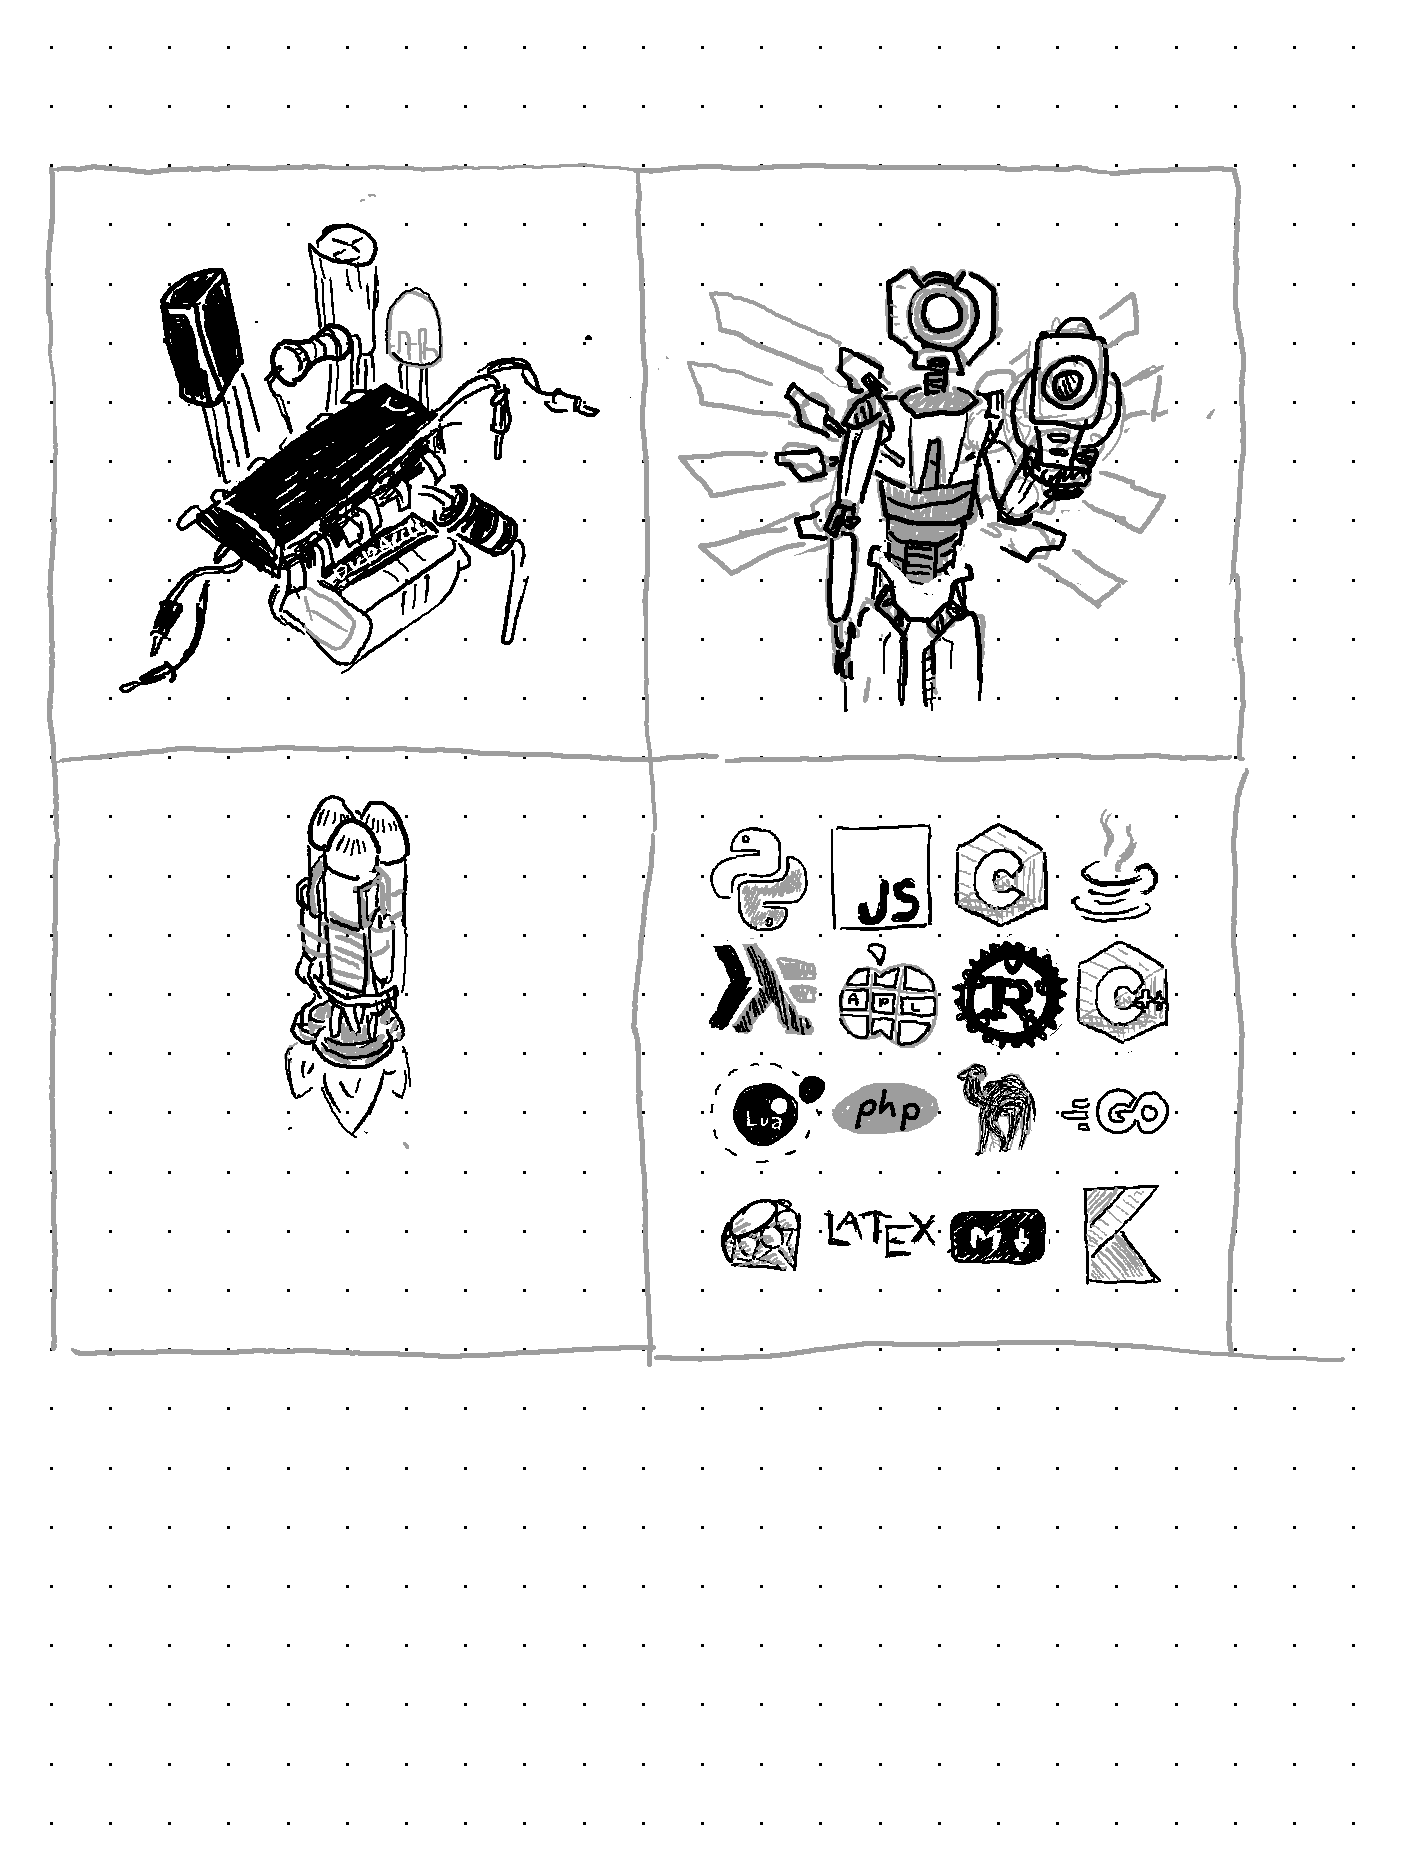 JS
C
A P L
R
C++
Lua
php
GO
LATEX
M
K